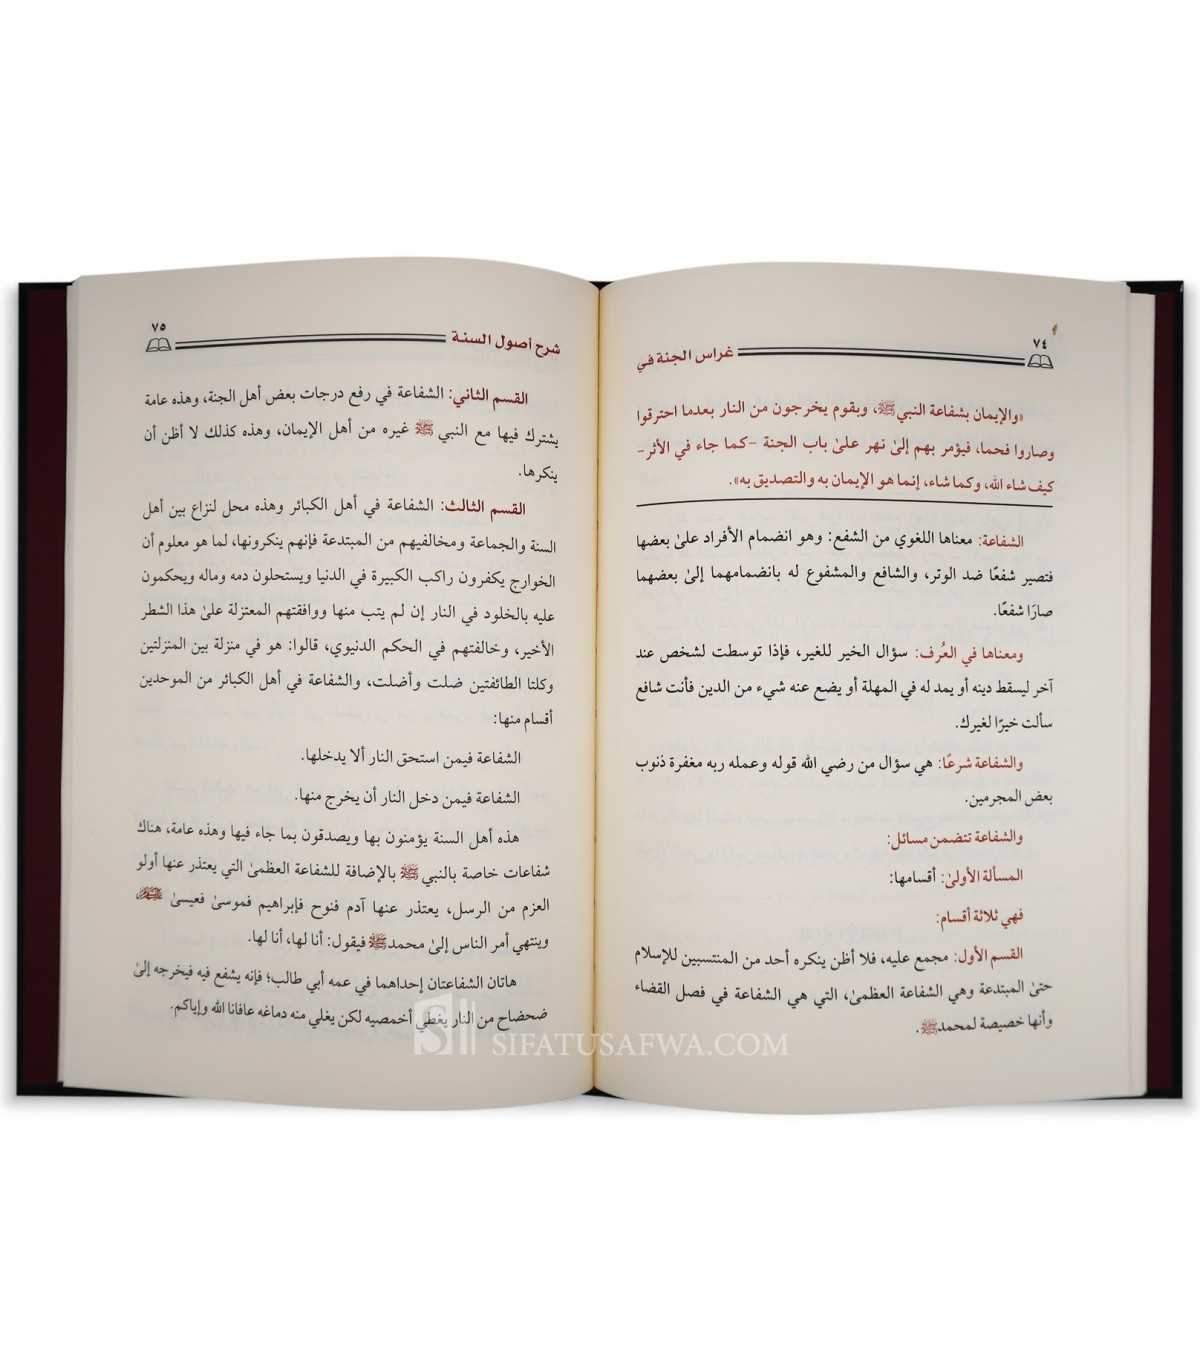 ٧٤
غراس الجنة في
«والإيمان بشفاعة النبي ﷺ، وبقوم يخرجون من النار بعدما احترقوا
وصاروا فحما، فيؤمر بهم إلىٰ نهر علىٰ باب الجنة -كما جاء في الأثر-
كيف شاء الله، وكما شاء، إنما هو الإيمان به والتصديق به».
الشفاعة: معناها اللغوي من الشفع: وهو انضمام الأفراد علىٰ بعضها
فتصير شفعًا ضد الوتر، والشافع والمشفوع له بانضمامهما إلىٰ بعضهما
صارَا شفعًا.
ومعناها في العُرف: سؤال الخير للغير، فإذا توسطت لشخص عند
آخر ليسقط دينه أو يمد له في المهلة أو يضع عنه شيء من الدين فأنت شافع
سألت خيرًا لغيرك.
والشفاعة شرعًا: هي سؤال من رضي الله قوله وعمله ربه مغفرة ذنوب
بعض المجرمين.
والشفاعة تتضمن مسائل:
المسألة الأولىٰ: أقسامها:
فهي ثلاثة أقسام:
القسم الأول: مجمع عليه، فلا أظن ينكره أحد من المنتسبين للإسلام
حتىٰ المبتدعة وهي الشفاعة العظمىٰ، التي هي الشفاعة في فصل القضاء
وأنها خصيصة لمحمد ﷺ.
شرح أصول السنة
٧٥
القسم الثاني: الشفاعة في رفع درجات بعض أهل الجنة، وهذه عامة
يشترك فيها مع النبي ﷺ غيره من أهل الإيمان، وهذه كذلك لا أظن أن
ينكرها.
القسم الثالث: الشفاعة في أهل الكبائر وهذه محل لنزاع بين أهل
السنة والجماعة ومخالفيهم من المبتدعة فإنهم ينكرونها، لما هو معلوم أن
الخوارج يكفرون راكب الكبيرة في الدنيا ويستحلون دمه وماله ويحكمون
عليه بالخلود في النار إن لم يتب منها ووافقتهم المعتزلة علىٰ هذا الشطر
الأخير، وخالفتهم في الحكم الدنيوي، قالوا: هو في منزلة بين المنزلتين
وكلتا الطائفتين ضلت وأضلت، والشفاعة في أهل الكبائر من الموحدين
أقسام منها:
الشفاعة فيمن استحق النار ألا يدخلها.
الشفاعة فيمن دخل النار أن يخرج منها.
هذه أهل السنة يؤمنون بها ويصدقون بما جاء فيها وهذه عامة، هناك
شفاعات خاصة بالنبي ﷺ بالإضافة للشفاعة العظمىٰ التي يعتذر عنها أولو
العزم من الرسل، يعتذر عنها آدم فنوح فإبراهيم فموسىٰ فعيسىٰ
وينتهي أمر الناس إلىٰ محمد ﷺ فيقول: أنا لها، أنا لها.
هاتان الشفاعتان إحداهما في عمه أبي طالب؛ فإنه يشفع فيه فيخرجه إلىٰ
ضحضاح من النار يغطي أخمصيه لكن يغلي منه دماغه عافانا الله وإياكم.
SIFATUSAFWA.COM